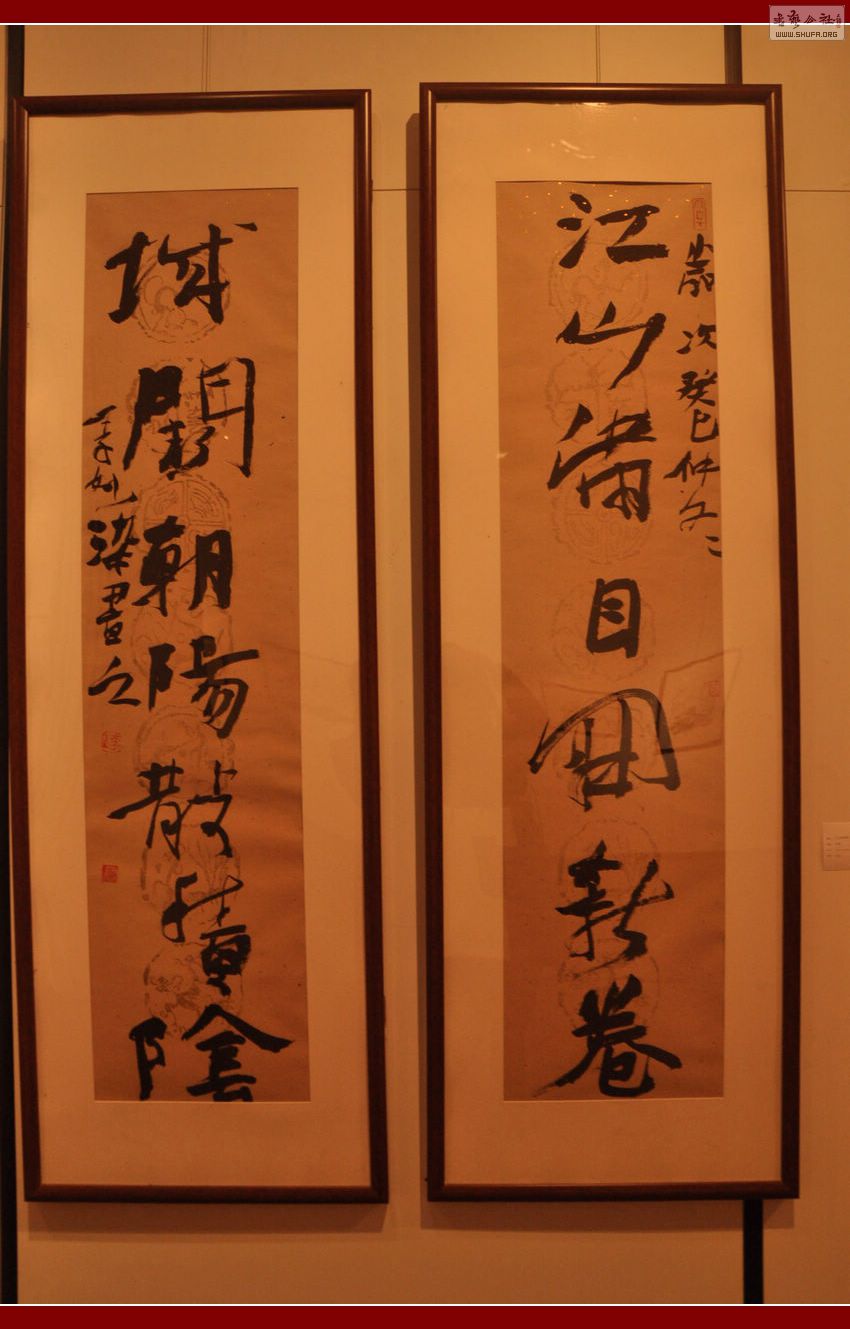 书艺公社
WWW.SHUFA.ORG
歲次癸巳仲冬
江山滿目開新卷
城闕朝陽散積陰
書之